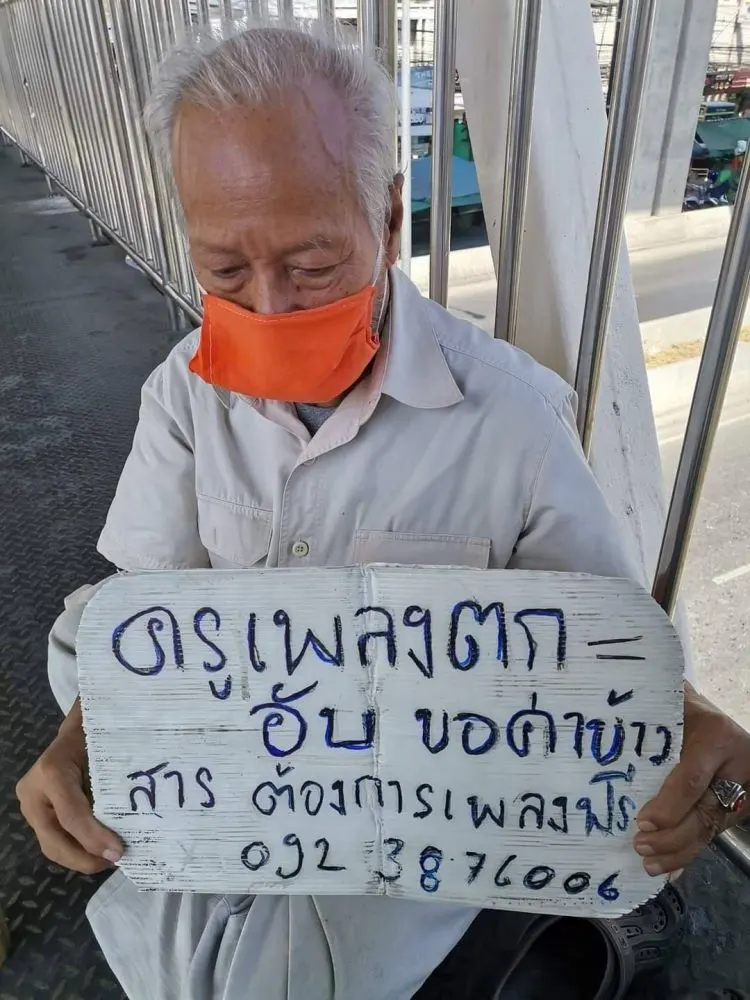 ครูเพลงตก =
อับ ขอค่าข้าว
สาร ต้องการเพลงฟรี
092 3876006